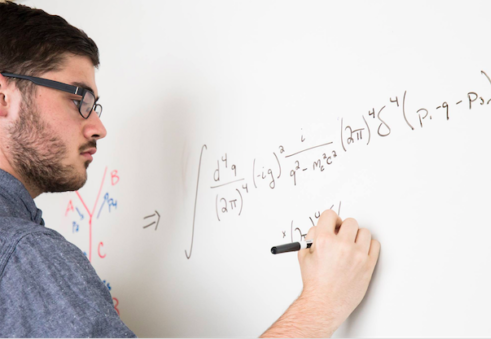 A B
p₂ p₄
C
B
⇒ ∫ d⁴q/(2π)⁴ (-ig)² i/(q² - m_c²c²) (2π)⁴ δ⁴(p₁ - q - p₃)
× (2π)⁴